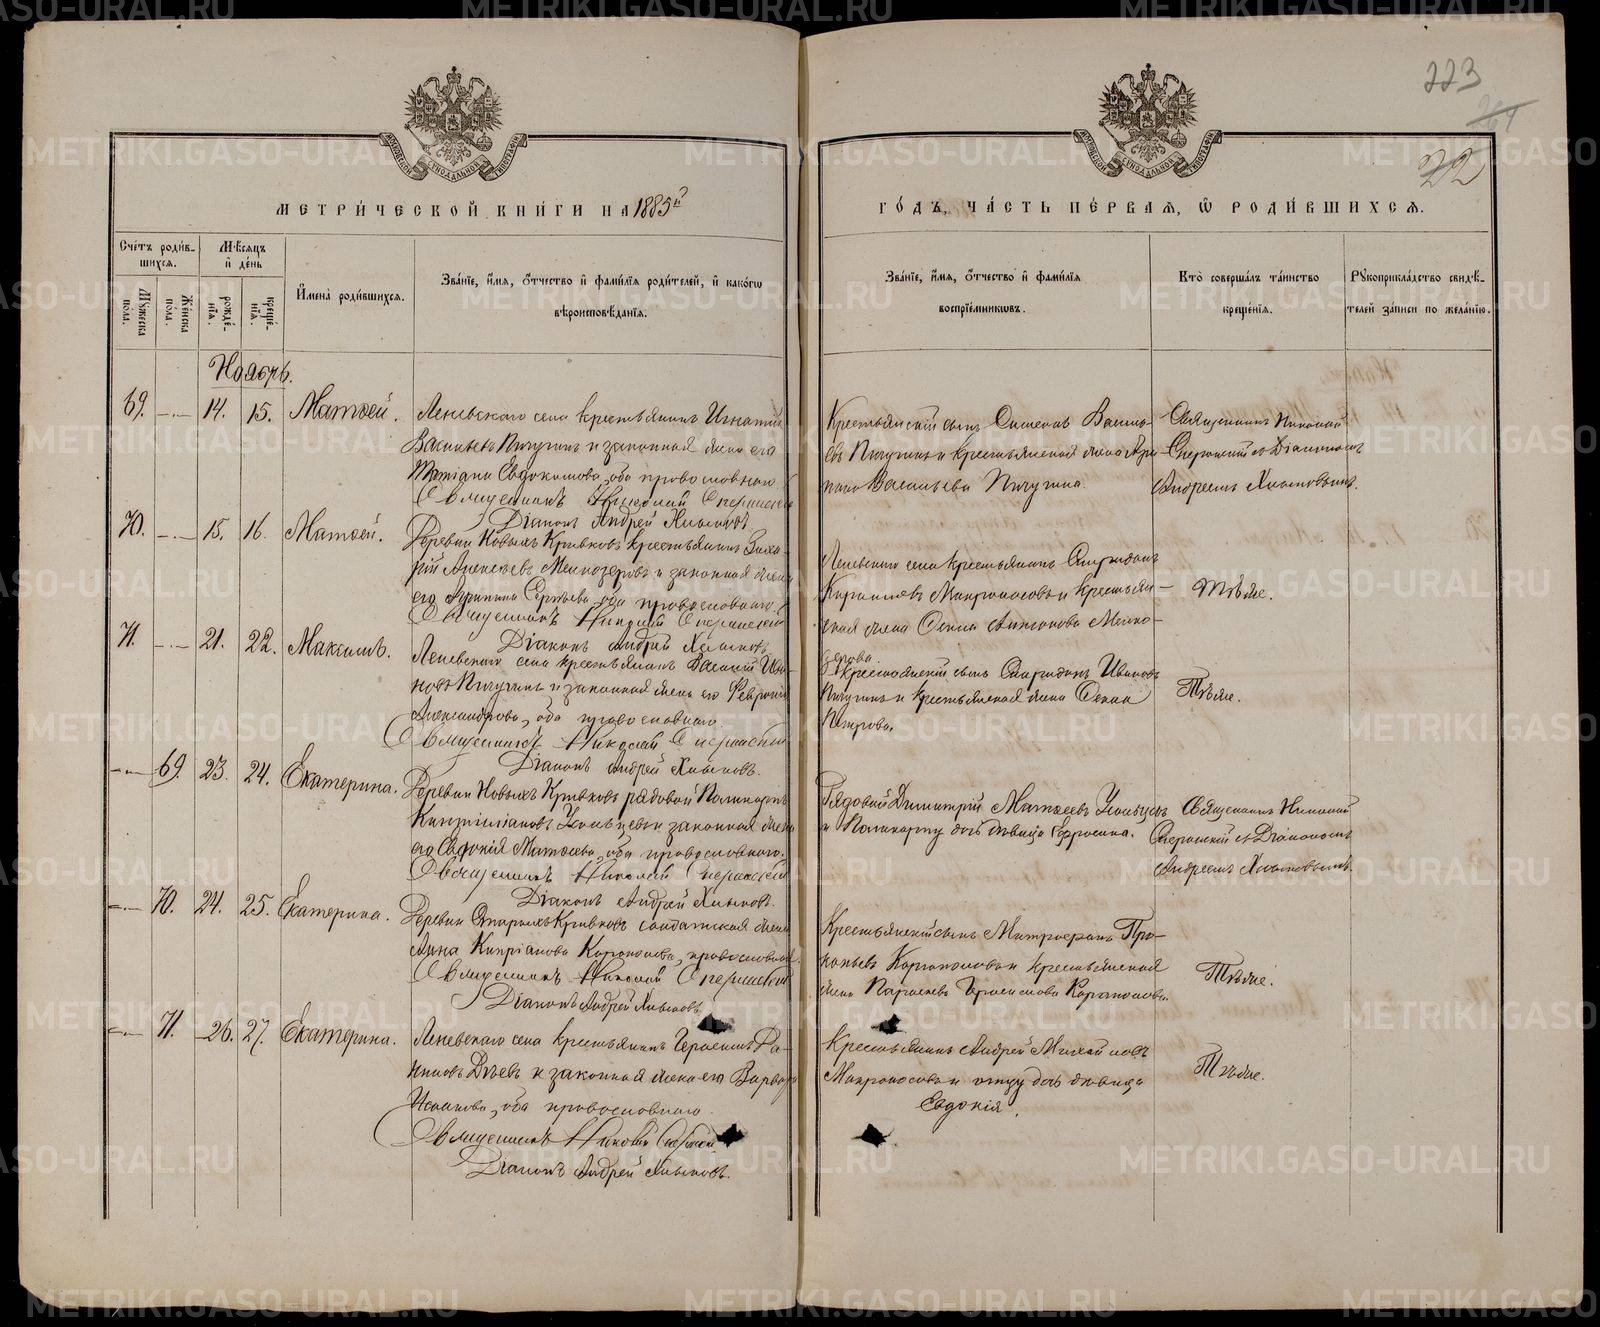 223
22
МЕТРИ́ЧЕСКОЙ КНИ́ГИ НА 1885й
ГО́ДЪ, ЧА́СТЬ ПЕ́РВАЯ, Ѡ РОДИ́ВШИХСЯ.
Сче́тъ роди́в-
шихся.
Мѣ́сяцъ
и҆ де́нь
Му́жеска
по́ла.
Же́нска
по́ла.
рожде́-
нїя.
креще́-
нїя.
И҆мена̀ роди́вшихся.
Зва́нїе, и҆́мя, ѻ҆́тчество и҆ фами́лїя роди́телей, и҆ како́гѡ
вѣроисповѣ́данїя.
Зва́нїе, и҆́мя, ѻ҆́тчество и҆ фами́лїя
воспрїе́мникѡвъ.
Кто̀ соверша́лъ та́инство
креще́нїя.
Рꙋкоприкла́дство свидѣ́-
телей за́писи по жела́нїю.
Ноябрь.
69. 14. 15. Матѳей.
Леневскаго села крестьянинъ Игнатій
Васильевъ Пичугинъ и законная жена его
Татіана Евдокимова, оба православнаго
Священникъ Николай Сперанскій
Діаконъ Андрей Хлыновъ.
Крестьянскій сынъ Симеонъ Василь-
евъ Пичугинъ и крестьянская жена
Васильева Пичугина.
Священникъ Николай
Сперанскій съ Діакономъ
Андреемъ Хлыновымъ.
70. 15. 16. Матѳей.
Деревни Новыхъ Кривковъ крестьянинъ Заха-
рій Алексѣевъ Мелкозеровъ и законная жена
его Сергѣева, оба православнаго
Священникъ Николай Сперанскій
Діаконъ Андрей Хлыновъ
Леневскаго села крестьянинъ Спиридонъ
Корниловъ и крестьян-
ская жена Мелко-
зерова
Тѣже.
71. 21. 22. Максимъ.
Леневскаго села крестьянинъ Василій Ива-
новъ Пичугинъ и законная жена его Февронія
Александрова, оба православнаго
Священникъ Николай Сперанскій
Діаконъ Андрей Хлыновъ.
крестьянскій сынъ Спиридонъ Ивановъ
Пичугинъ и крестьянская жена
Петрова.
Тѣже.
69. 23. 24. Екатерина.
Деревни Новыхъ Кривковъ рядовой Поликарпъ
Кипріановъ и законная жена
его Евдокія Матѳеева, оба православнаго.
Священникъ Николай Сперанскій
Діаконъ Андрей Хлыновъ.
Рядовой Димитрій Матѳеевъ
и Поликарпу дочь дѣвица
Священникъ Николай
Сперанскій съ Діакономъ
Андреемъ Хлыновымъ.
70. 24. 25. Екатерина.
Деревни Старыхъ Кривковъ солдатская жена
Анна Кипріанова, православная
Священникъ Николай Сперанскій
Діаконъ Андрей Хлыновъ
Крестьянскій сынъ Митрофанъ Про-
копьевъ и крестьянская
жена
Тѣже.
71. 26. 27. Екатерина.
Леневскаго села крестьянинъ Герасимъ Да-
ниловъ Дѣевъ и законная жена его Варвара
оба православнаго
Священникъ Николай Сперанскій
Діаконъ Андрей Хлыновъ.
Крестьянинъ Андрей Михайловъ
и отцу дочь дѣвица
Евдокія.
Тѣже.
METRIKI.GASO-URAL.RU